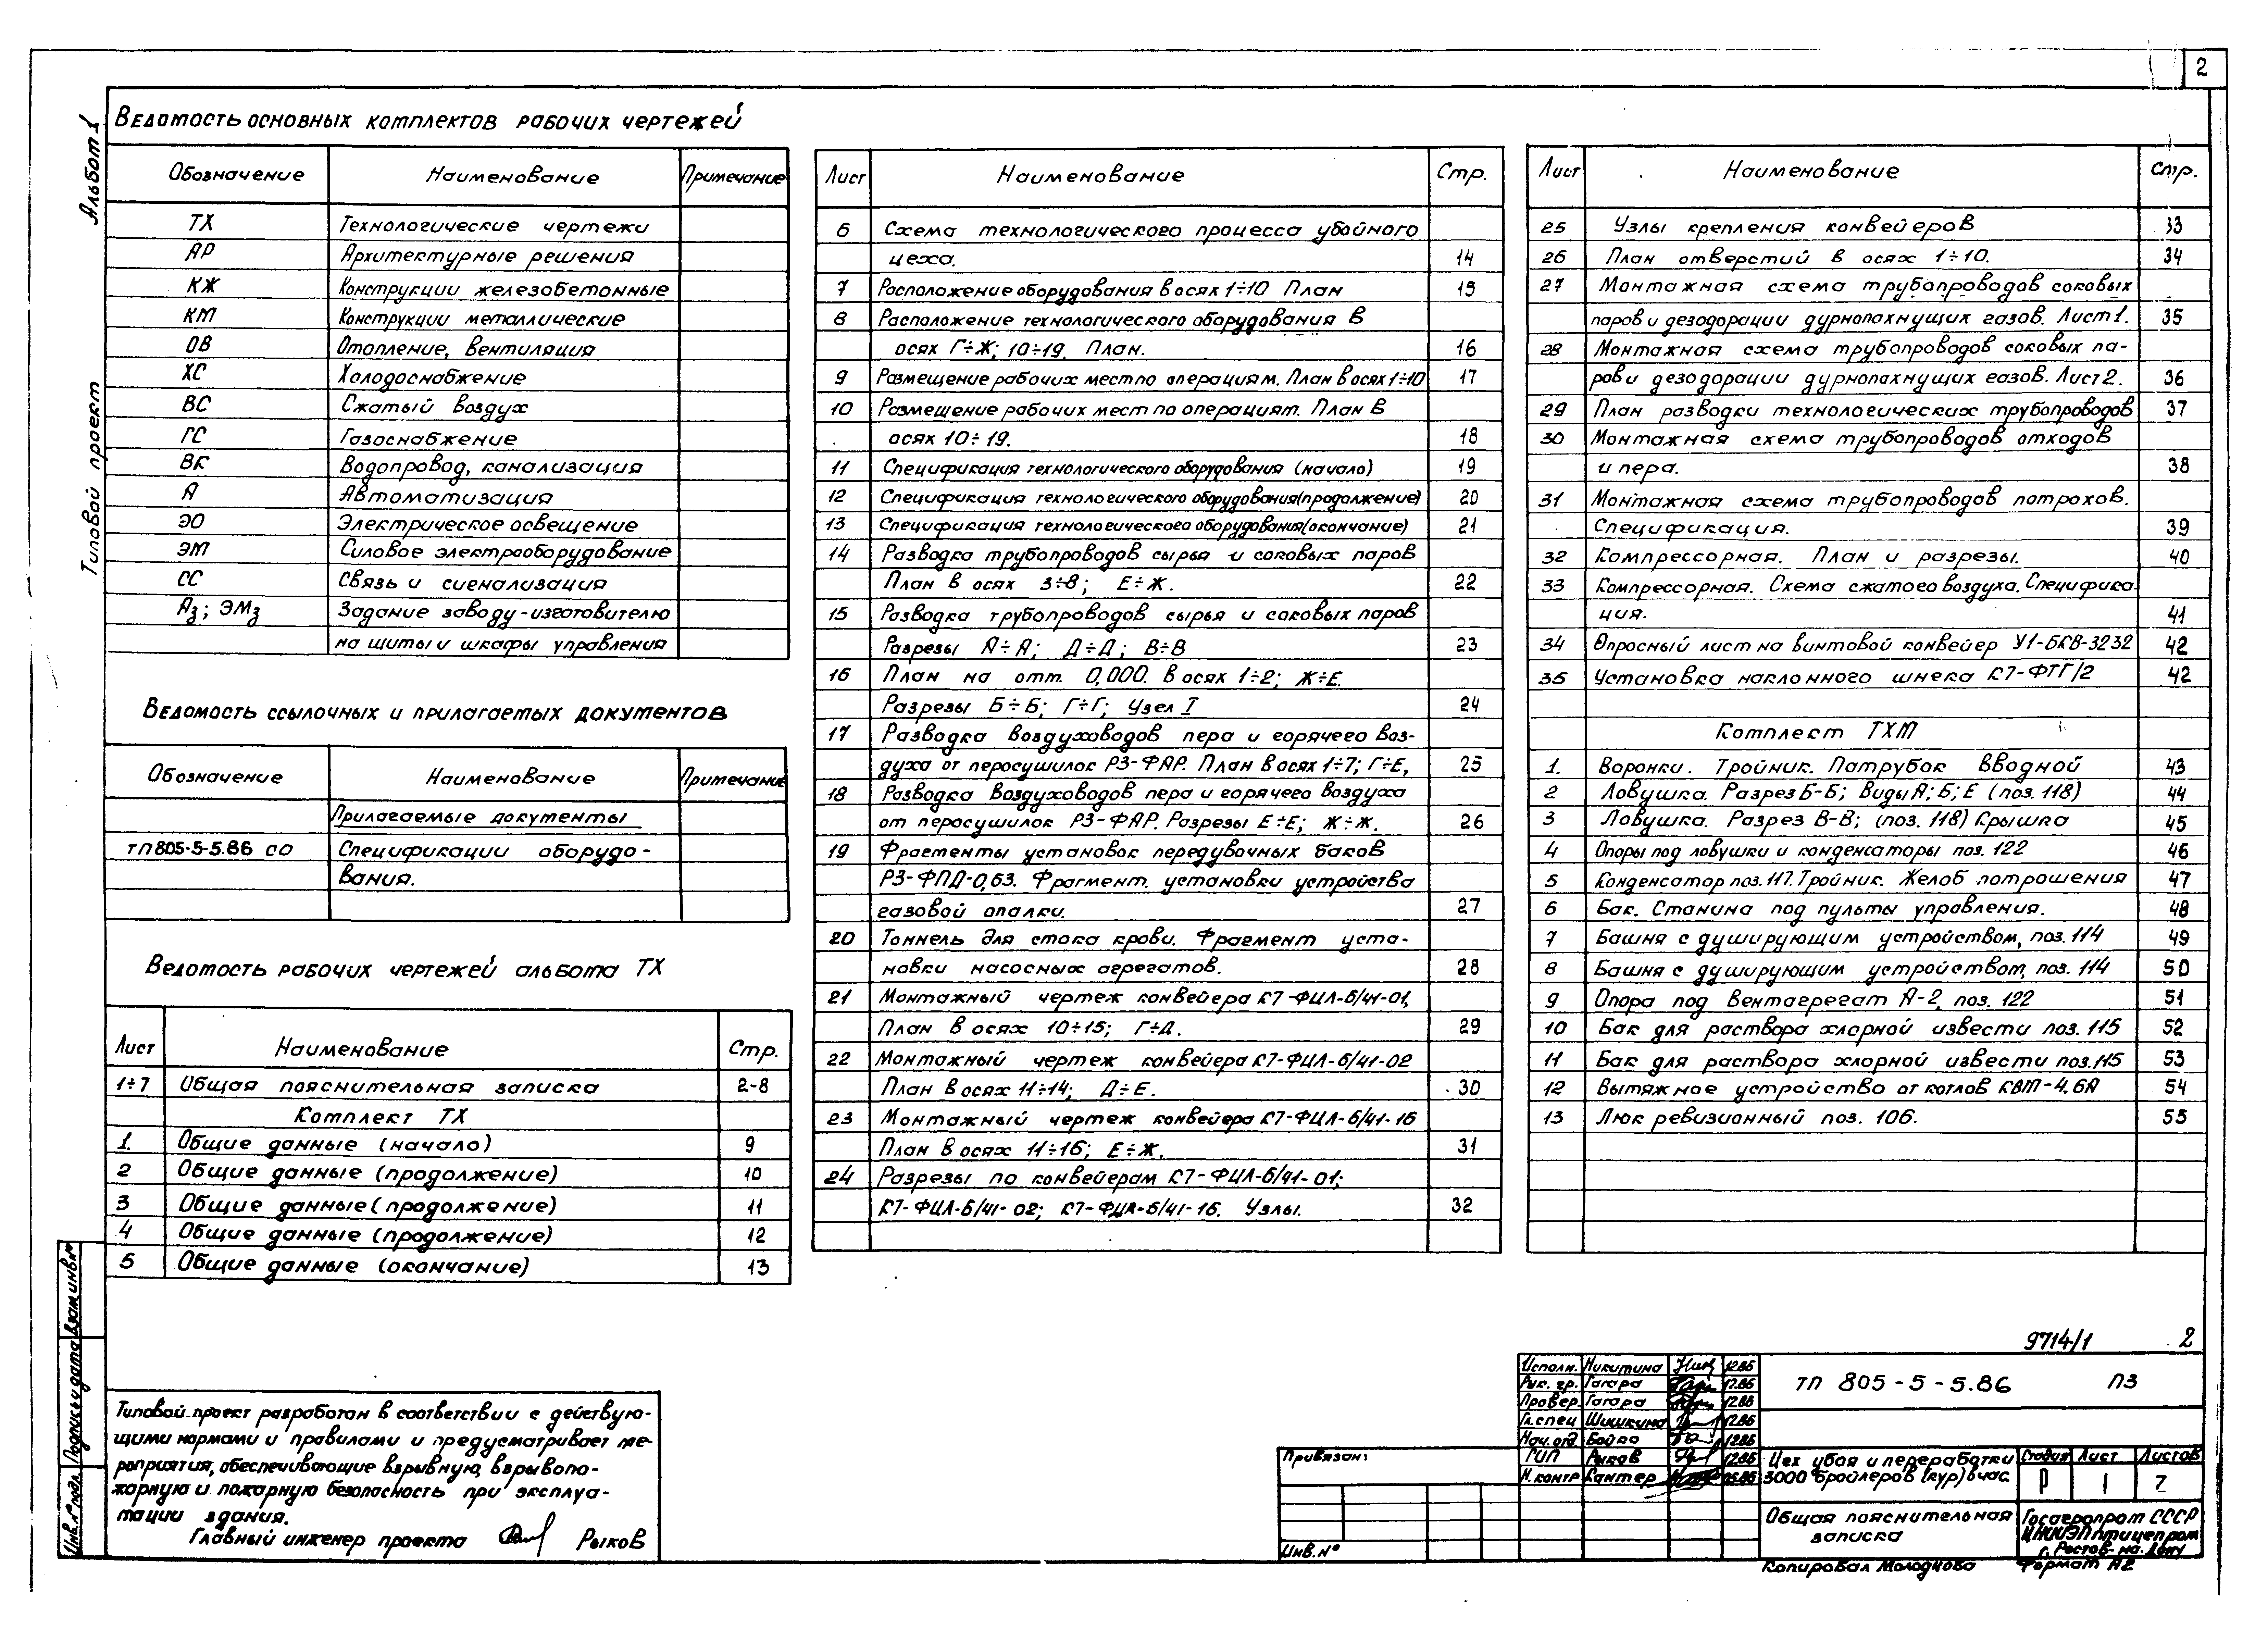 2
Альбом 1
Типовой проект
Ведомость основных комплектов рабочих чертежей
Обозначение Наименование Примечание
ТХ Технологические чертежи
АР Архитектурные решения
КЖ Конструкции железобетонные
КМ Конструкции металлические
ОВ Отопление, вентиляция
ХС Холодоснабжение
ВС Сжатый воздух
ГС Газоснабжение
ВК Водопровод, канализация
А Автоматизация
ЭО Электрическое освещение
ЭМ Силовое электрооборудование
СС Связь и сигнализация
Аз; ЭМз Задание заводу-изготовителю
на щиты и шкафы управления
Ведомость ссылочных и прилагаемых документов
Обозначение Наименование Примечание
Прилагаемые документы
ТП 805-5-5.86 СО Спецификации оборудо-
вания.
Ведомость рабочих чертежей альбома ТХ
Лист Наименование Стр.
1÷7 Общая пояснительная записка 2-8
Комплект ТХ
1. Общие данные (начало) 9
2 Общие данные (продолжение) 10
3 Общие данные (продолжение) 11
4 Общие данные (продолжение) 12
5 Общие данные (окончание) 13
Лист Наименование Стр.
6 Схема технологического процесса убойного
цеха. 14
7 Расположение оборудования в осях 1÷10 План 15
8 Расположение технологического оборудования в
осях Г÷Ж; 10÷19. План. 16
9 Размещение рабочих мест по операциям. План в осях 1÷10 17
10 Размещение рабочих мест по операциям. План в
осях 10÷19. 18
11 Спецификация технологического оборудования (начало) 19
12 Спецификация технологического оборудования (продолжение) 20
13 Спецификация технологического оборудования (окончание) 21
14 Разводка трубопроводов сырья и соковых паров
План в осях 3÷8; Е÷Ж. 22
15 Разводка трубопроводов сырья и соковых паров
Разрезы А÷А; Д÷Д; В÷В 23
16 План на отм. 0,000. в осях 1÷2; Ж÷Е.
Разрезы Б÷Б; Г÷Г; Узел I 24
17 Разводка воздуховодов пера и горячего воз-
духа от перосушилок РЗ-ФАР. План в осях 1÷7; Г÷Е, 25
18 Разводка воздуховодов пера и горячего воздуха
от перосушилок РЗ-ФАР. Разрезы Е÷Е; Ж÷Ж. 26
19 Фрагменты установок передувочных баков
РЗ-ФПД-0,63. Фрагмент. установки устройства
газовой опалки. 27
20 Тоннель для стока крови. Фрагмент уста-
новки насосных агрегатов. 28
21 Монтажный чертеж конвейера К7-ФЦЛ-6/41-01,
План в осях 10÷15; Г÷Д. 29
22 Монтажный чертеж конвейера К7-ФЦЛ-6/41-02
План в осях 11÷14; Д÷Е. 30
23 Монтажный чертеж конвейера К7-ФЦЛ-6/41-16
План в осях 11÷16; Е÷Ж. 31
24 Разрезы по конвейерам К7-ФЦЛ-6/41-01;
К7-ФЦЛ-6/41-02; К7-ФЦЛ-6/41-16. Узлы. 32
Лист Наименование Стр.
25 Узлы крепления конвейеров 33
26 План отверстий в осях 1÷10. 34
27 Монтажная схема трубопроводов соковых
паров и дезодорации дурнопахнущих газов. Лист 1. 35
28 Монтажная схема трубопроводов соковых па-
ров и дезодорации дурнопахнущих газов. Лист 2. 36
29 План разводки технологических трубопроводов 37
30 Монтажная схема трубопроводов отходов
и пера. 38
31 Монтажная схема трубопроводов потрохов.
Спецификация. 39
32 Компрессорная. План и разрезы. 40
33 Компрессорная. Схема сжатого воздуха. Специфика-
ция. 41
34 Опросный лист на винтовой конвейер У1-БКВ-3232 42
35 Установка наклонного шнека К7-ФТГ/2 42
Комплект ТХМ
1. Воронки. Тройник. Патрубок вводной 43
2 Ловушка. Разрез Б-Б; Виды А; Б; Е (поз. 118) 44
3 Ловушка. Разрез В-В; (поз. 118) Крышка 45
4 Опоры под ловушки и конденсаторы поз. 122 46
5 Конденсатор поз. 117. Тройник. Желоб потрошения 47
6 Бак. Станина под пульты управления. 48
7 Башня с душирующим устройством, поз. 114 49
8 Башня с душирующим устройством, поз. 114 50
9 Опора под вентагрегат А-2, поз. 122 51
10 Бак для раствора хлорной извести поз. 115 52
11 Бак для раствора хлорной извести поз. 115 53
12 Вытяжное устройство от котлов КВМ-4.6А 54
13 Люк ревизионный поз. 106. 55
Взам.инв.№
Подпись и дата
Инв.№ подл.
Типовой проект разработан в соответствии с действую-
щими нормами и правилами и предусматривает ме-
роприятия, обеспечивающие взрывную, взрывопо-
жарную и пожарную безопасность при эксплуа-
тации здания.
Главный инженер проекта Рыков
9714/1 2
Исполн. Никитина 12.86
Рук. гр. Гагара 12.86
Провер. Гагара 12.86
Гл.спец Шишкина 12.86
Нач.отд. Бойко 12.86
ГИП Рыков 12.86
Н.контр Кантер
ТП 805-5-5.86 ПЗ
Привязан:
Инв.№
Цех убоя и переработки
3000 бройлеров (кур) в час.
Стадия Лист Листов
Р 1 7
Общая пояснительная
записка
Госагропром СССР
ЦНИИЭПптицепром
г. Ростов-на-Дону
Копировал Молодцова Формат А2